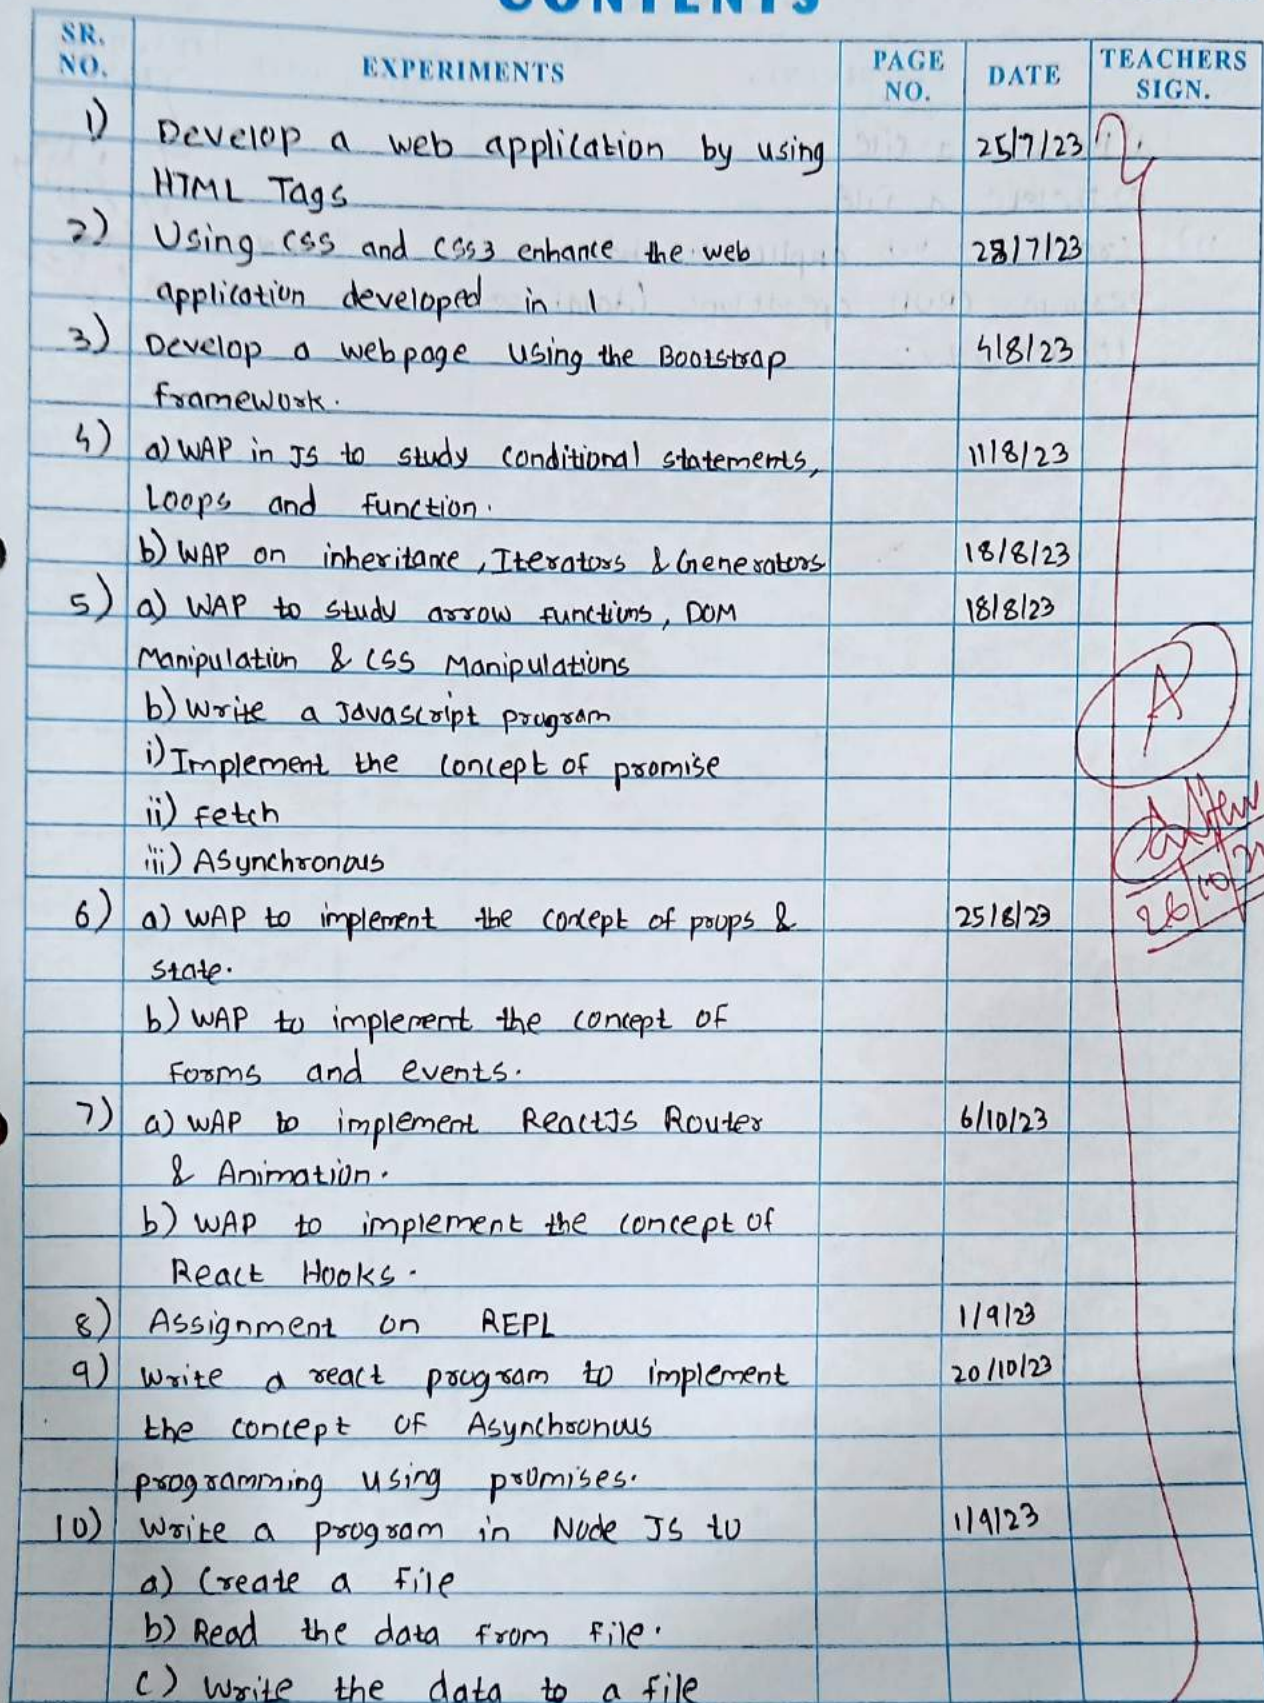 CONTENTS
SR. NO.
EXPERIMENTS
PAGE NO.
DATE
TEACHERS SIGN.
1) Develop a web application by using 25/7/23
HTML Tags
2) Using CSS and CSS3 enhance the web 28/7/23
application developed in 1
3) Develop a webpage using the Bootstrap 4/8/23
framework.
4) a) WAP in JS to study conditional statements, 11/8/23
Loops and function.
b) WAP on inheritance, Iterators & Generators 18/8/23
5) a) WAP to study arrow functions, DOM 18/8/23
Manipulation & CSS Manipulations
b) Write a Javascript program
i) Implement the concept of promise
ii) Fetch
iii) Asynchronous
6) a) WAP to implement the concept of props & 25/8/23
state.
b) WAP to implement the concept of
Forms and events.
7) a) WAP to implement ReactJS Router 6/10/23
& Animation.
b) WAP to implement the concept of
React Hooks.
8) Assignment on REPL 1/9/23
9) Write a react program to implement 20/10/23
the concept of Asynchronous
programming using promises.
10) Write a program in Node JS to 1/9/23
a) Create a file
b) Read the data from file.
c) Write the data to a file
A
26/10/2